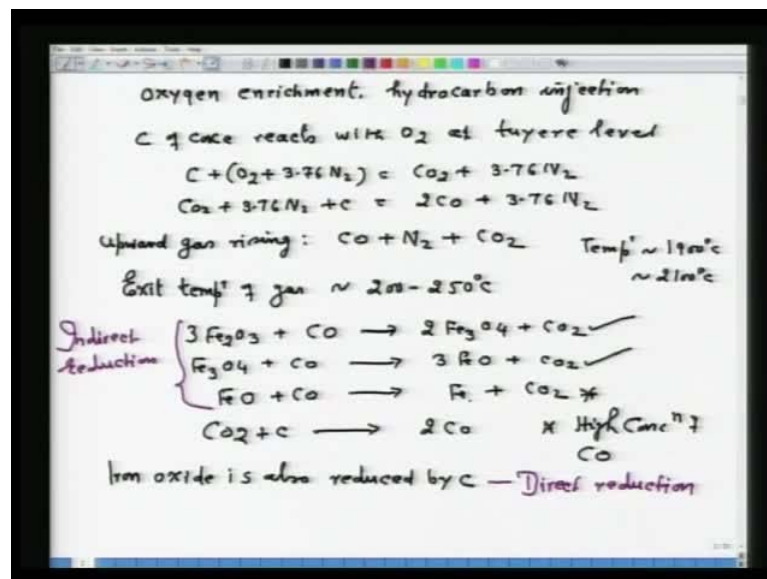 oxygen enrichment. hydrocarbon injection
C of coke reacts with O2 at tuyere level
C + (O2 + 3.76 N2) = CO2 + 3.76 N2
CO2 + 3.76 N2 + C = 2CO + 3.76 N2
Upward gas rising: CO + N2 + CO2 Temp' ~ 1900°C
~ 2100°C
Exit temp' of gas ~ 200-250°C
Indirect reduction
3Fe2O3 + CO → 2Fe3O4 + CO2 ✓
Fe3O4 + CO → 3FeO + CO2 ✓
FeO + CO → Fe. + CO2 *
CO2 + C → 2CO * High Concn of
CO
Iron oxide is also reduced by C - Direct reduction